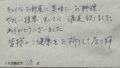 そんなお部屋に美味しいお料理
やさしい接客 すべてに満足致しました
ありがとうございました
皆様のご健康をお祈りして居ります